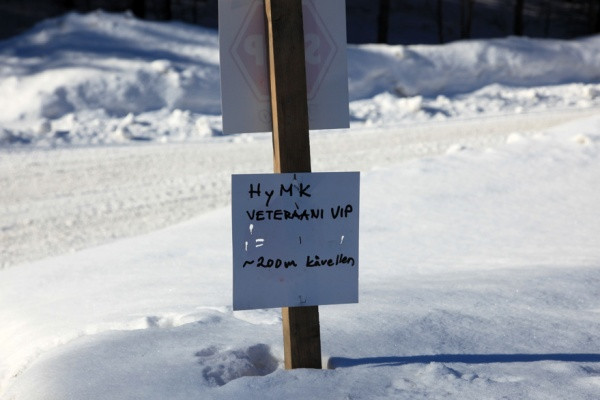 HyMK
VETERAANI VIP
~200m kävellen